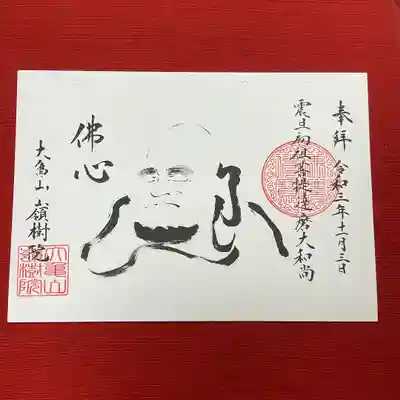 奉拝 令和三年十一月三日
震旦初祖菩提達磨大和尚
佛心
大亀山嶺樹院
大亀山
嶺樹院